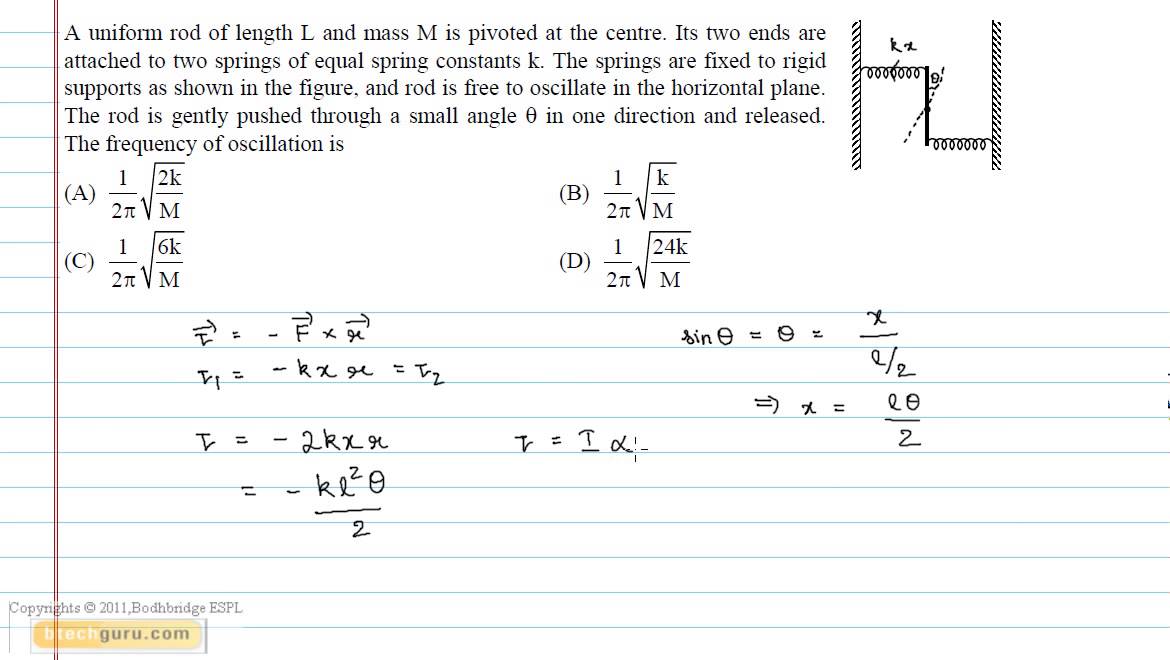 A uniform rod of length L and mass M is pivoted at the centre. Its two ends are
attached to two springs of equal spring constants k. The springs are fixed to rigid
supports as shown in the figure, and rod is free to oscillate in the horizontal plane.
The rod is gently pushed through a small angle θ in one direction and released.
The frequency of oscillation is
kx
θ
(A) 1/2π √(2k/M) (B) 1/2π √(k/M)
(C) 1/2π √(6k/M) (D) 1/2π √(24k/M)
τ⃗ = - F⃗ × r⃗ sinθ = θ = x/(l/2)
τ₁ = - kxr = τ₂ ⇒ x = lθ/2
τ = - 2kxr τ = I α
= - kl²θ/2
Copyrights © 2011,Bodhbridge ESPL
btechguru.com